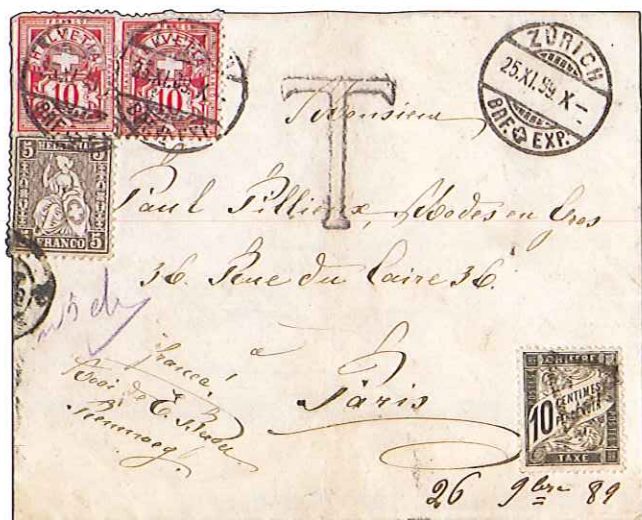 HELVETIA
10
HELVETIA
10
ZÜRICH
25.XI.89.X–
BRF. EXP.
25.XI.89.X
BRF. EXP.
T
Monsieur
5 HELVETIA 5
5 FRANCO 5
Paul Pillieux, Modes en Gros
36. Rue du Caire 36.
à
Paris
franco!
CHIFFRE
10 CENTIMES
À PERCEVOIR
TAXE
26 9bre 89